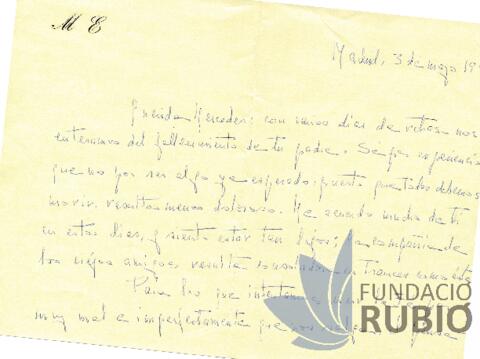 M E
Madrid, 3 de mayo 19
Querida Mercedes: con varios días de retraso nos
enteramos del fallecimiento de tu padre. Sé por experiencia
que no por ser algo ya esperado, puesto que todos debemos
morir, resulta menos doloroso. Me acuerdo mucho de ti
en estos días, y siento estar tan lejos; la compañía de
los viejos amigos, resulta consoladora en trances como este
Para los que intentamos
muy mal e imperfectamente que nos
FUNDACIÓ
RUBIÓ